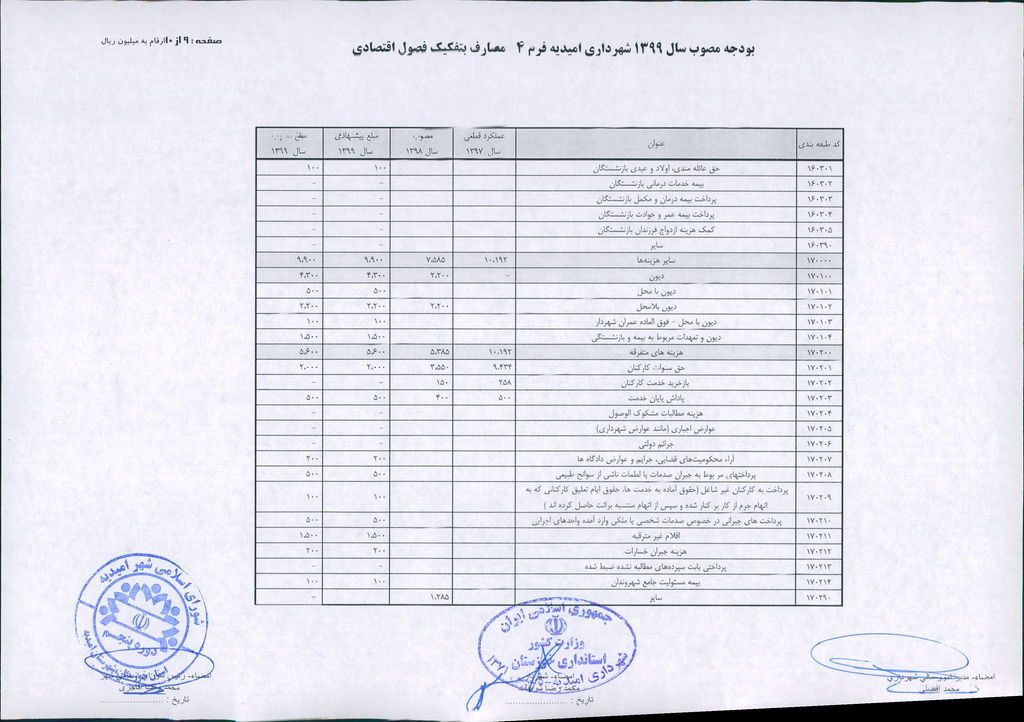 بودجه مصوب سال ۱۳۹۹ شهرداری امیدیه فرم ۴ مصارف بتفکیک فصول اقتصادی
صفحه : ۹ از ۱۰ ارقام به میلیون ریال
کد طبقه بندی عنوان عملکرد قطعی سال ۱۳۹۷ مصوب سال ۱۳۹۸ مبلغ پیشنهادی سال ۱۳۹۹ مبلغ سال ۱۳۹۹
۱۶۰۳۰۱ حق عائله مندی، اولاد و عیدی بازنشستگان ۱۰۰ ۱۰۰
۱۶۰۳۰۲ بیمه خدمات درمانی بازنشستگان - -
۱۶۰۳۰۳ پرداخت بیمه درمان و مکمل بازنشستگان - -
۱۶۰۳۰۴ پرداخت بیمه عمر و حوادث بازنشستگان - -
۱۶۰۳۰۵ کمک هزینه ازدواج فرزندان بازنشستگان - -
۱۶۰۳۹۰ سایر - -
۱۷۰۰۰۰ سایر هزینه‌ها ۱۰،۱۹۲ ۷،۵۸۵ ۹،۹۰۰ ۹،۹۰۰
۱۷۰۱۰۰ دیون - ۲،۲۰۰ ۴،۳۰۰ ۴،۳۰۰
۱۷۰۱۰۱ دیون با محل ۵۰۰ ۵۰۰
۱۷۰۱۰۲ دیون بلامحل ۲،۲۰۰ ۲،۲۰۰ ۲،۲۰۰
۱۷۰۱۰۳ دیون با محل - فوق العاده عمران شهردار ۱۰۰ ۱۰۰
۱۷۰۱۰۴ دیون و تعهدات مربوط به بیمه و بازنشستگی ۱،۵۰۰ ۱،۵۰۰
۱۷۰۲۰۰ هزینه های متفرقه ۱۰،۱۹۲ ۵،۳۸۵ ۵،۶۰۰ ۵،۶۰۰
۱۷۰۲۰۱ حق سنوات کارکنان ۹،۴۳۴ ۳،۵۵۰ ۲،۰۰۰ ۲،۰۰۰
۱۷۰۲۰۲ بازخرید خدمت کارکنان ۲۵۸ ۱۵۰ - -
۱۷۰۲۰۳ پاداش پایان خدمت ۵۰۰ ۴۰۰ ۵۰۰ ۵۰۰
۱۷۰۲۰۴ هزینه مطالبات مشکوک الوصول - -
۱۷۰۲۰۵ عوارض اجباری (مانند عوارض شهرداری) - -
۱۷۰۲۰۶ جرائم دولتی - -
۱۷۰۲۰۷ آراء محکومیت‌های قضایی، جرایم و عوارض دادگاه ها ۲۰۰ ۲۰۰
۱۷۰۲۰۸ پرداختهای مربوط به جبران صدمات یا لطمات ناشی از سوانح طبیعی ۵۰۰ ۵۰۰
پرداخت به کارکنان غیر شاغل (حقوق آماده به خدمت ها، حقوق ایام تعلیق کارکنانی که به
۱۷۰۲۰۹ اتهام جرم از کار بر کنار شده و سپس از اتهام منتسبه برائت حاصل کرده اند ) ۱۰۰ ۱۰۰
۱۷۰۲۱۰ پرداخت های جبرانی در خصوص صدمات شخصی یا ملکی وارد آمده واحدهای اجرایی ۵۰۰ ۵۰۰
۱۷۰۲۱۱ اقلام غیر مترقبه ۱،۵۰۰ ۱،۵۰۰
۱۷۰۲۱۲ هزینه جبران خسارات ۲۰۰ ۲۰۰
۱۷۰۲۱۳ پرداختی بابت سپرده‌های مطالبه نشده ضبط شده - -
۱۷۰۲۱۴ بیمه مسئولیت جامع شهروندان ۱۰۰ ۱۰۰
۱۷۰۲۹۰ سایر ۱،۲۸۵ -
امضاء، مدیر امور مالی شهرداری
محمد افضلی
جمهوری اسلامی ایران
وزارت کشور
استانداری خوزستان
شهرداری امیدیه
۱۳۷۱
امضاء، شهردار
تاریخ :
شورای اسلامی شهر امیدیه
دوره پنجم
استان خوزستان
امضاء، رئیس شهر
تاریخ :